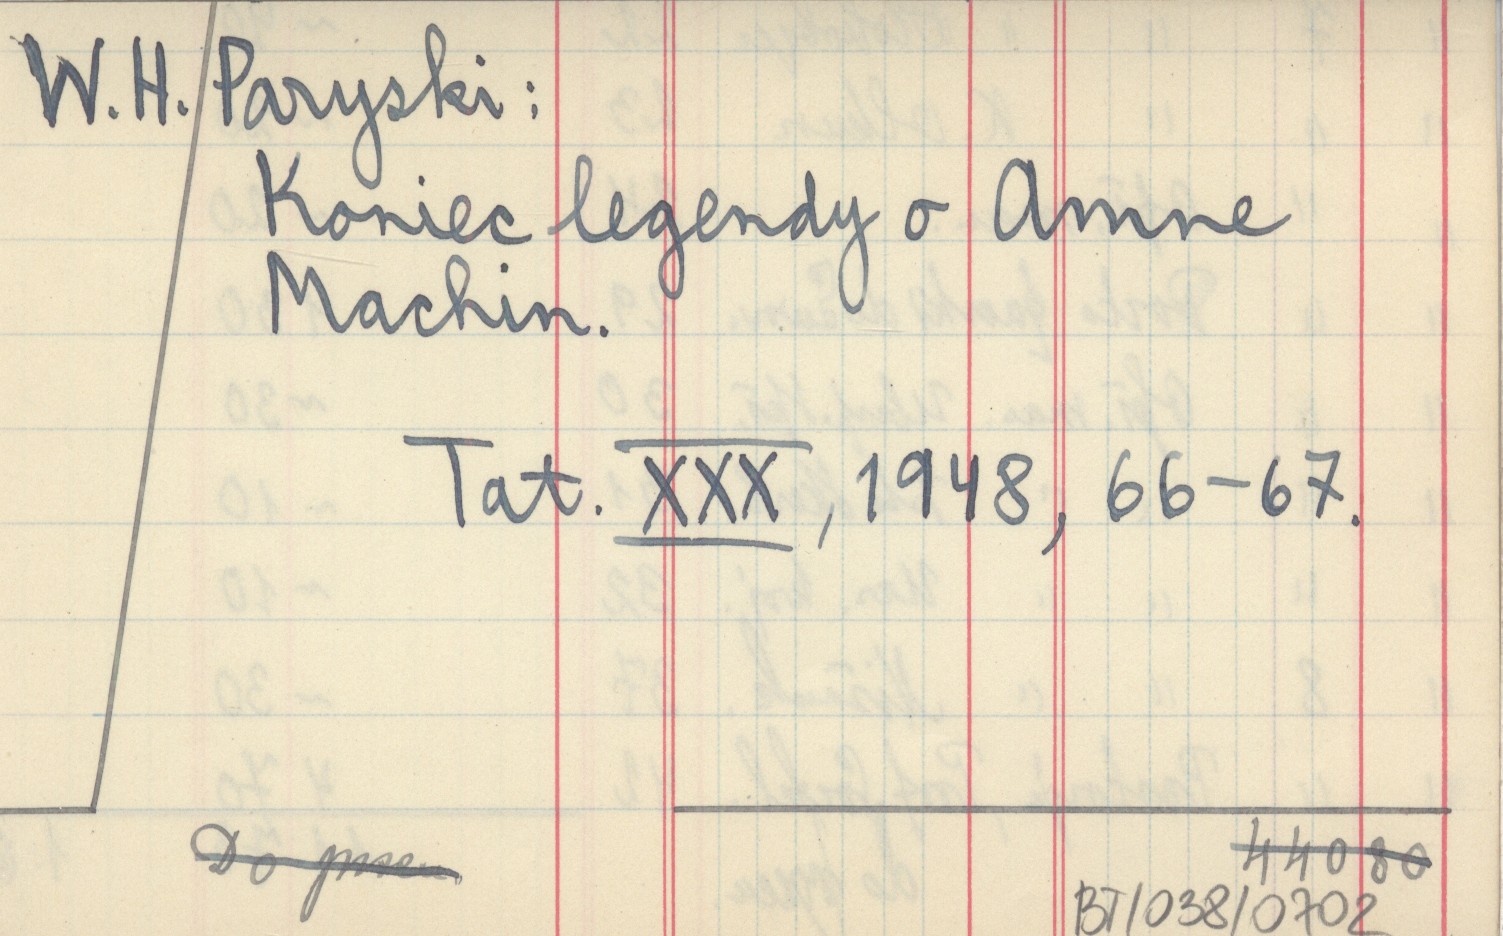 W.H. Paryski:
Koniec legendy o Amne
Machin.
Tat. XXX, 1948, 66-67.
Do
44080
BT/038/0702